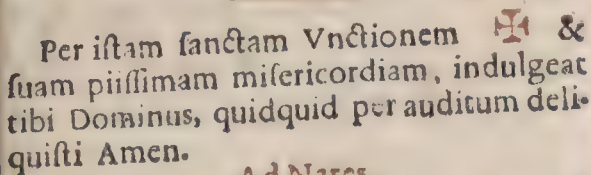 Per iſtam ſanctam Vnctionem ✠ &
ſuam piiſſimam miſericordiam, indulgeat
tibi Dominus, quidquid per auditum deli-
quiſti Amen.
Ad Nares